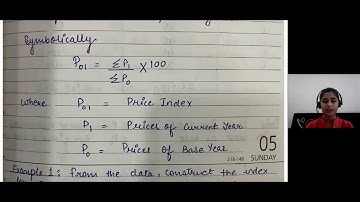 Symbolically
P01 = ΣP1 / ΣP0 × 100
where P01 = Price Index
P1 = Prices of Current Year
P0 = Prices of Base Year
05
218-148 SUNDAY
Example 1: From the data, construct the index